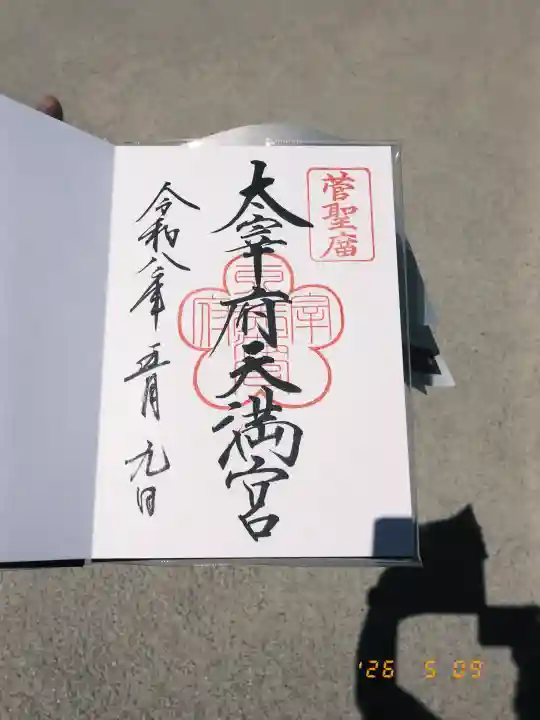 菅聖廟
太宰府天満宮
令和八年 五月 九日
'26 5 09